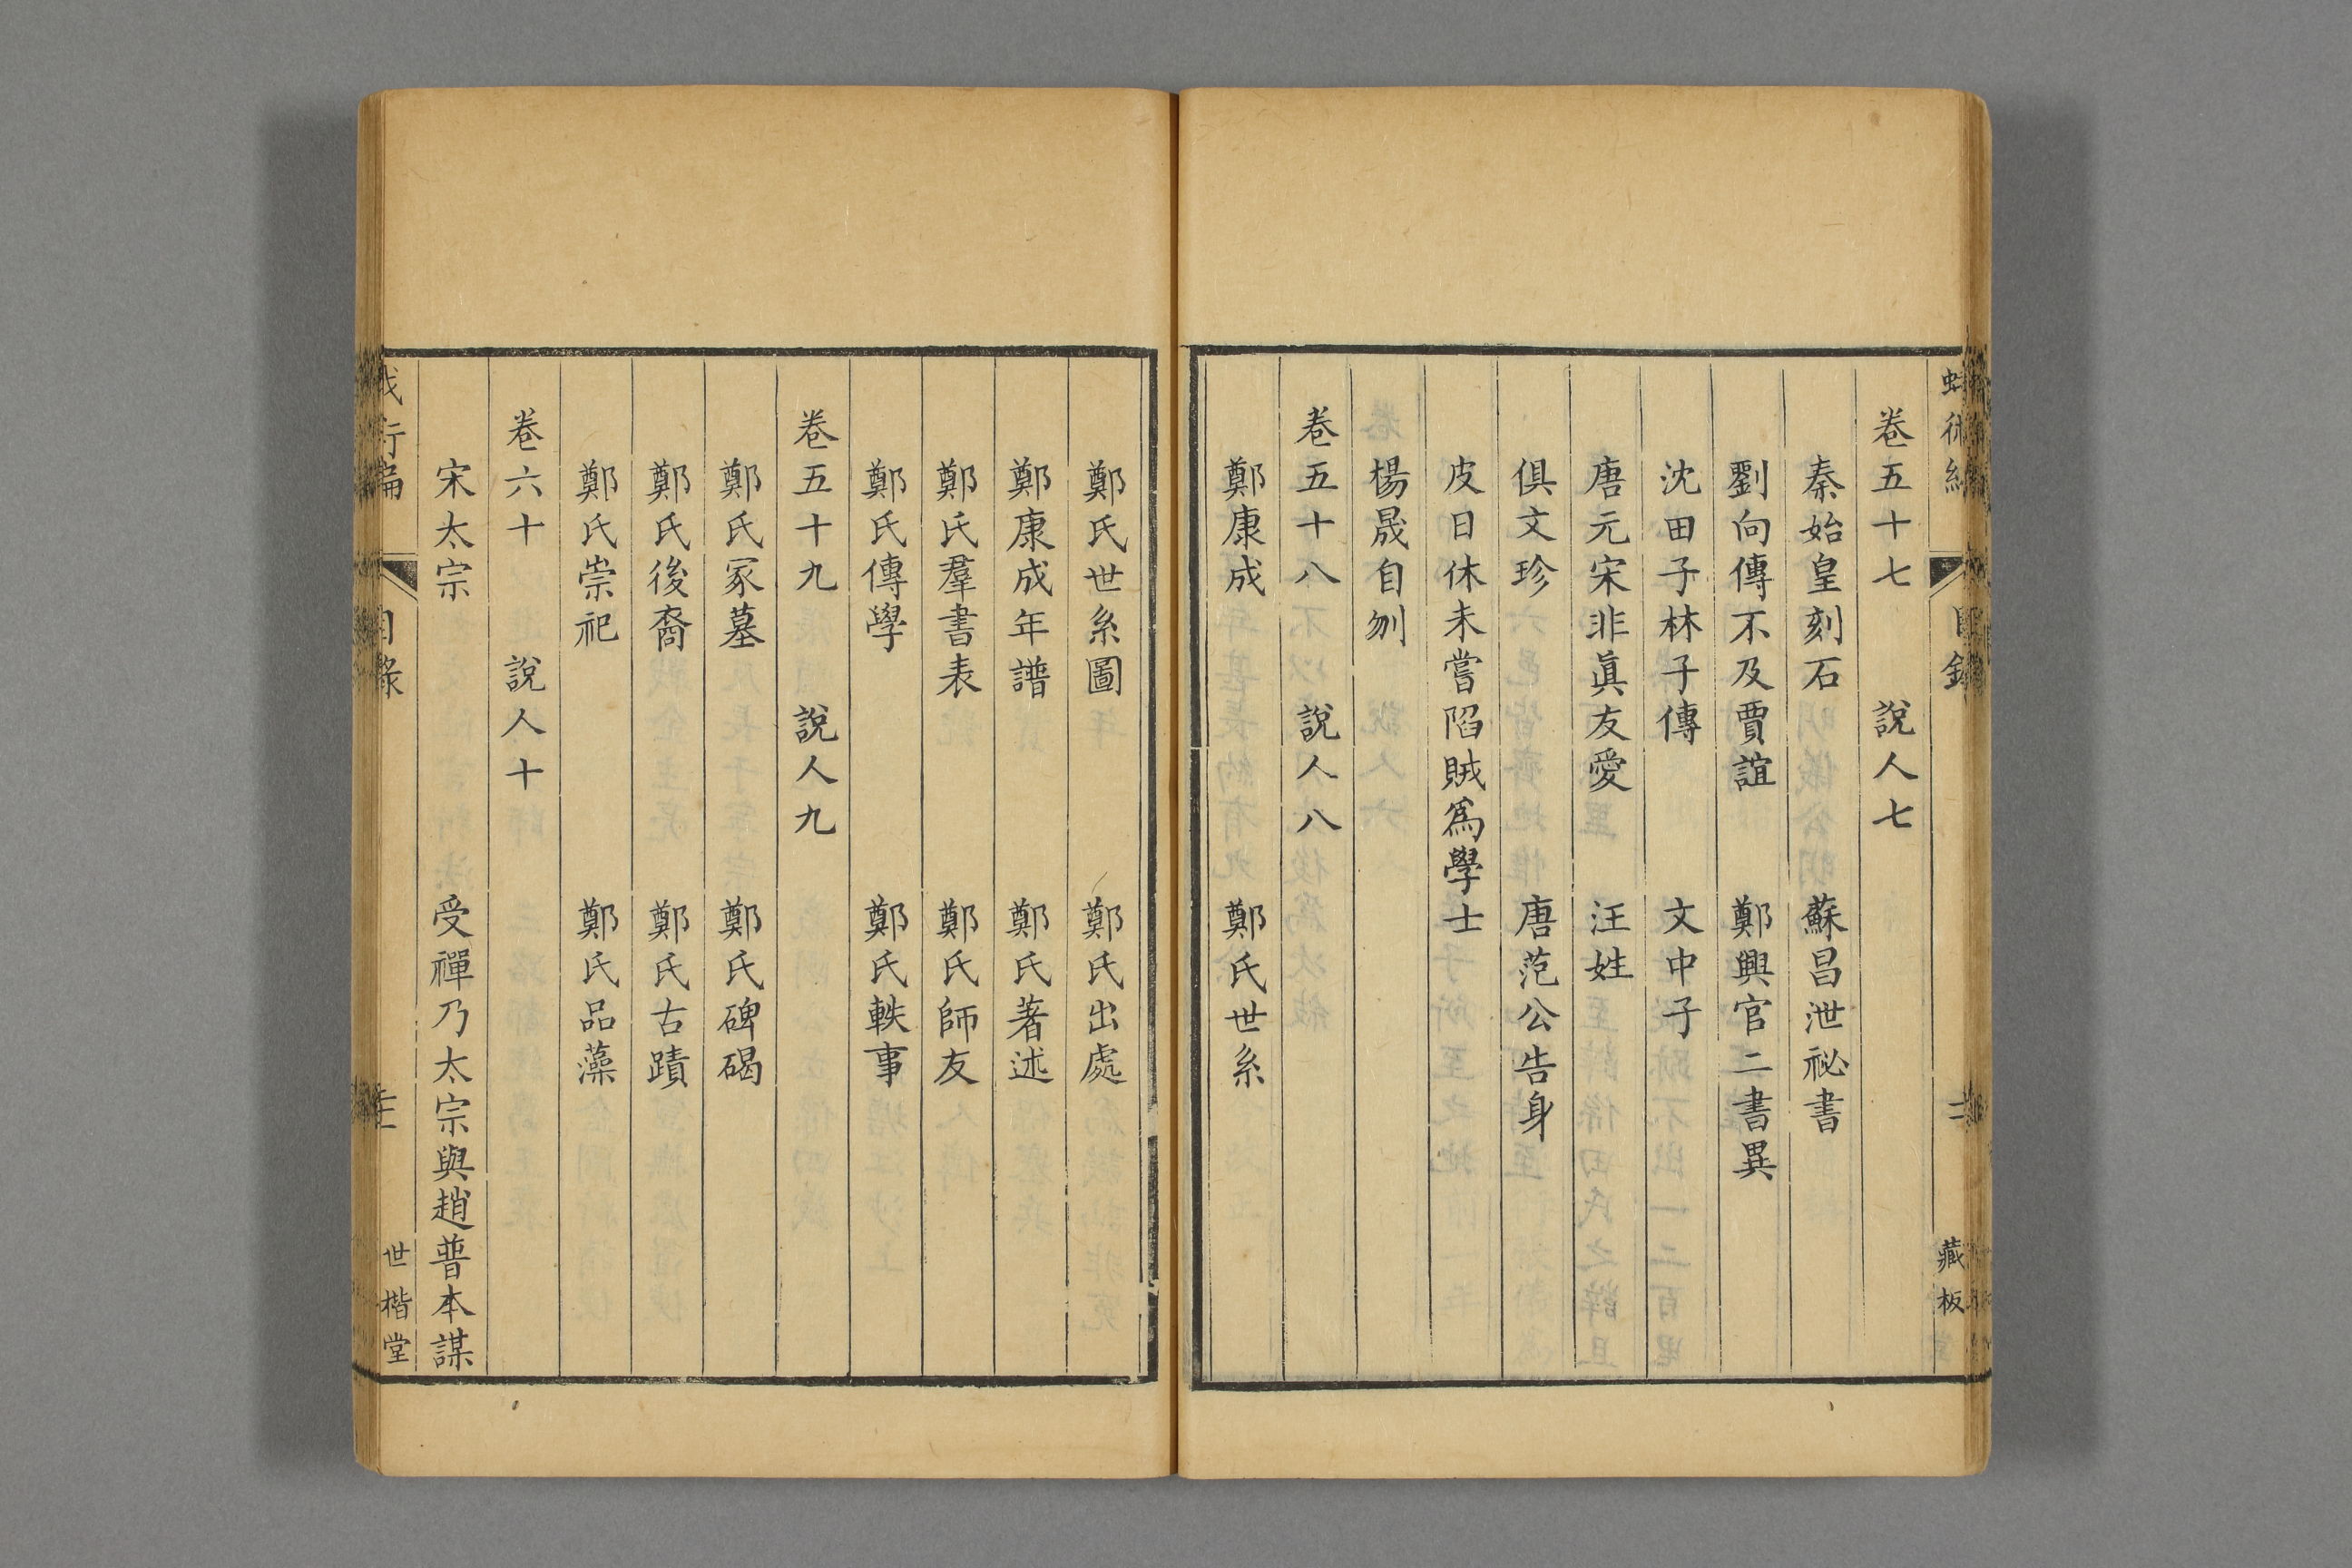 卷五十七 說人七
秦始皇刻石 蘇昌泄祕書
劉向傳不及賈誼 鄭興官二書異
沈田子林子傳 文中子
唐元宋非眞友愛 汪姓
俱文珍 唐范公告身
皮日休未嘗陷賊爲學士
楊晟自刎
卷五十八 說人八
鄭康成 鄭氏世系
藏板
鄭氏世系圖 鄭氏出處
鄭康成年譜 鄭氏著述
鄭氏羣書表 鄭氏師友
鄭氏傳學 鄭氏軼事
卷五十九 說人九
鄭氏冢墓 鄭氏碑碣
鄭氏後裔 鄭氏古蹟
鄭氏崇祀 鄭氏品藻
卷六十 說人十
宋太宗 受禪乃太宗與趙普本謀
目錄
世楷堂